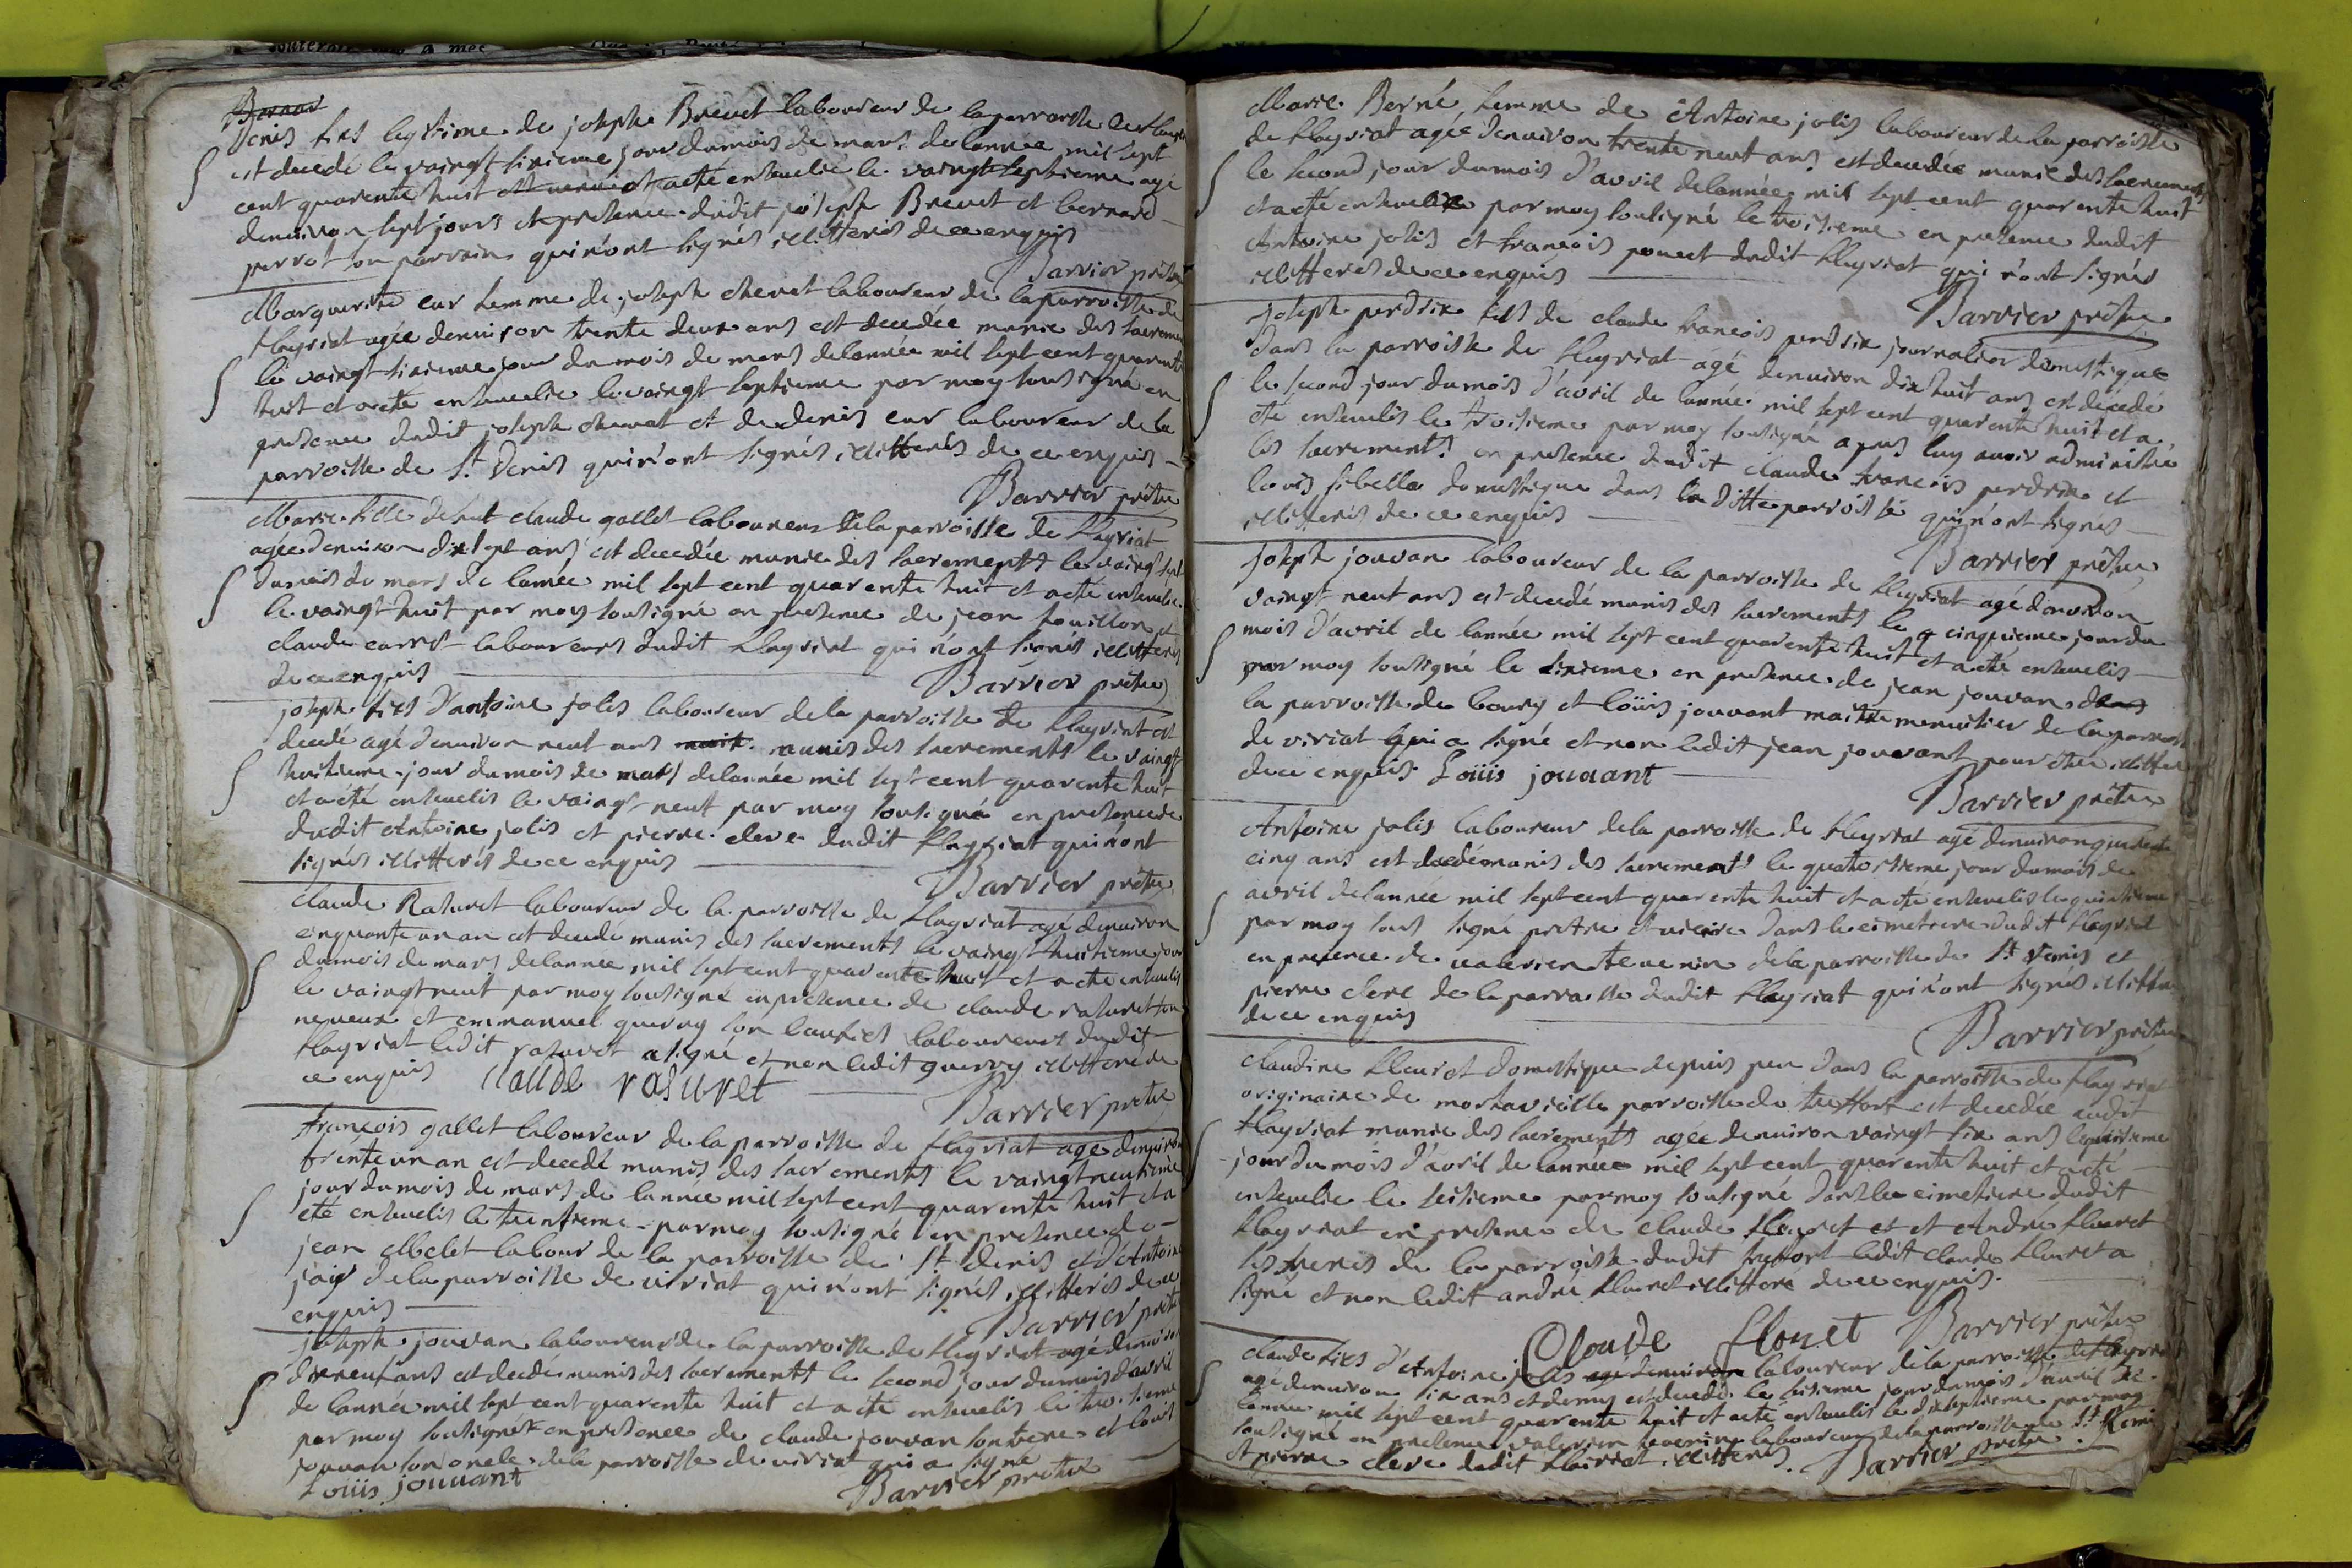 Denis fils legitime de joseph Brevet laboureur de la parroisse de
est decedé le vaingt sixieme jour du mois de mars de lannée mil sept
cent quarente huit et a eté ensevelie le vaingt septieme agé
denuiron sept jours et presence dudit joseph Brevet et bernard
perrot son parrain qui n'ont signés illitterés de ce enquis
Barrier prêtre
Marguerite eur femme de joseph chevat laboureur de la parroisse de
flayriat agée denuiron trente deux ans est decedée munie des sacremen
le vaingt sixieme jour du mois de mars de lannée mil sept cent quarente
huit et a eté ensevelie le vaingt septieme par moy sousigné en
presence dudit joseph chevat et de denis eur laboureur de la
parroisse de St Denis qui n'ont signés illitterés de ce enquis
Barrier prêtre
Marie fille defunt claude gallet laboureur de la parroisse de flayriat
agée denuiron dix sept ans est decedée munie des sacrements le vaingt sept
du mois de mars de lannée mil sept cent quarente huit et a eté ensevelie
le vaingt huit par moy sousigné en presence de jean fouillon et
claude carret laboureurs dudit flayriat qui n'ont signés illitterés
de ce enquis
Barrier prêtre
joseph fils d'antoine jolis laboureur de la parroisse de flayriat est
decedé agé denuiron neuf ans munis des sacrements le vaingt
huitieme jour du mois de mars de lannée mil sept cent quarente huit
et a été ensevelis le vaingt neuf par moy sousigné en presence de
dudit Antoine jolis et pierre clere dudit flayriat qui n'ont
signés illitterés de ce enquis
Barrier prêtre
claude Raturet laboureur de la parroisse de flayriat agé denuiron
cinquante un an est decedé munis des sacrements le vaingt huitieme jour
du mois de mars de lannée mil sept cent quarente huit et a eté ensevelis
le vaingt neuf par moy sousigné en presence de claude raturet son
neueux et emmanuel querry son beaufils laboureurs dudit
flayriat ledit raturet a signé et non ledit querry illitteré de
ce enquis claude raturet
Barrier prêtre
François gallet laboureur de la parroisse de flayriat agé denuiron
trente un an est decedé munis des sacrements le vaingt neufieme
jour du mois de mars de lannée mil sept cent quarente huit et a
eté ensevelis le trentieme par moy sousigné en presence de
jean Mbelet labour de la parroisse de St denis et d'Antoine
jaij de la parroisse de viriat qui n'ont signés illitterés de ce
enquis
Barrier prêtre
joseph jouvan laboureur de la parroisse de flayriat agé denuiron
dixneuf ans est decedé munis des sacrements le second jour du mois d'avril
de lannée mil sept cent quarente huit et a eté ensevelis le troisieme
par moy sousigné en presence de claude jouvan son frere et louis
jouvan son oncle de la parroisse de viriat qui a signé
Loüis jouuant
Barrier prêtre
Marie Berné femme de Antoine jolis laboureur de la parroisse
de flayriat agée denuiron trente neuf ans est decedée munie des sacrements
le second jour du mois d'avril de lannée mil sept cent quarente huit
et a eté ensevelie par moy sousigné le troisieme en presence dudit
Antoine jolis et francois ponect dudit flayriat qui n'ont signés
illitterés de ce enquis
Barrier prêtre
joseph perdrix fils de claude francois perdrix journalier domestique
dans la parroisse de flayriat agé denuiron dix huit ans est décedé
le second jour du mois d'avril de lannée mil sept cent quarente huit et a
eté ensevelis le troisieme par moy sousigné apres luy auoir administré
les sacrements en presence dudit claude francois perdrix et
louis sibelle domestique dans la ditte parroisse qui n'ont signes
illitterés de ce enquis
Barrier prêtre
joseph jouvan laboureur de la parroisse de flayriat agé denuiron
vaingt neuf ans est decedé munis des sacrements le cinquieme jour du
mois d'avril de lannée mil sept cent quarente huit et a eté ensevelis
par moy sousigné le sixieme en presence de jean jouvan
la parroisse de bourg et loüis jouvant maitre menuisier de la parroisse
de viriat qui a signé et non ledit jean jouvant pour être illitteré
de ce enquis Loüis jouuant
Barrier prêtre
Antoine jolis laboureur de la parroisse de flayriat agé denuiron quarente
cinq ans est decedé munis des sacrements le quatorzieme jour du mois de
avril de lannée mil sept cent quarente huit et a eté ensevelis le quinzieme
par moy sous signé pretre et vicaire dans le cimetiere dudit flayriat
en presence de ualerien teuenin de la parroisse de St Remis et
pierre clere de la parroisse dudit flayriat qui n'ont signés illitteré
de ce enquis
Barrier prêtre
Claudine fleuret domestique depuis peu dans la parroisse de flayriat
originaire de montaviolle parroisse de treffort est decedée audit
flayriat munie des sacrements agée denuiron vaingt six ans le
jour du mois d'avril de lannée mil sept cent quarente huit et a eté
ensevelie le seisieme par moy sousigné dans le cimetiere dudit
flayriat en presence de claude fleuret et et André fleuret
ses freres de la parroisse dudit treffort ledit claude fleuret a
signé et non ledit andré fleuret illitteré de ce enquis
Cloude flouet Barrier prêtre
claude fils d'Antoine jolis laboureur de la parroisse de flayriat
agé denuiron six ans et demy est decedé le seisieme jour du mois d'avril de
lannée mil sept cent quarente huit et a eté ensevelis le dixseptieme par moy
sousigné en presence valerien tevenin laboureur de la parroisse de St Remi
et pierre clere dudit flairiat illitterés
Barrier prêtre